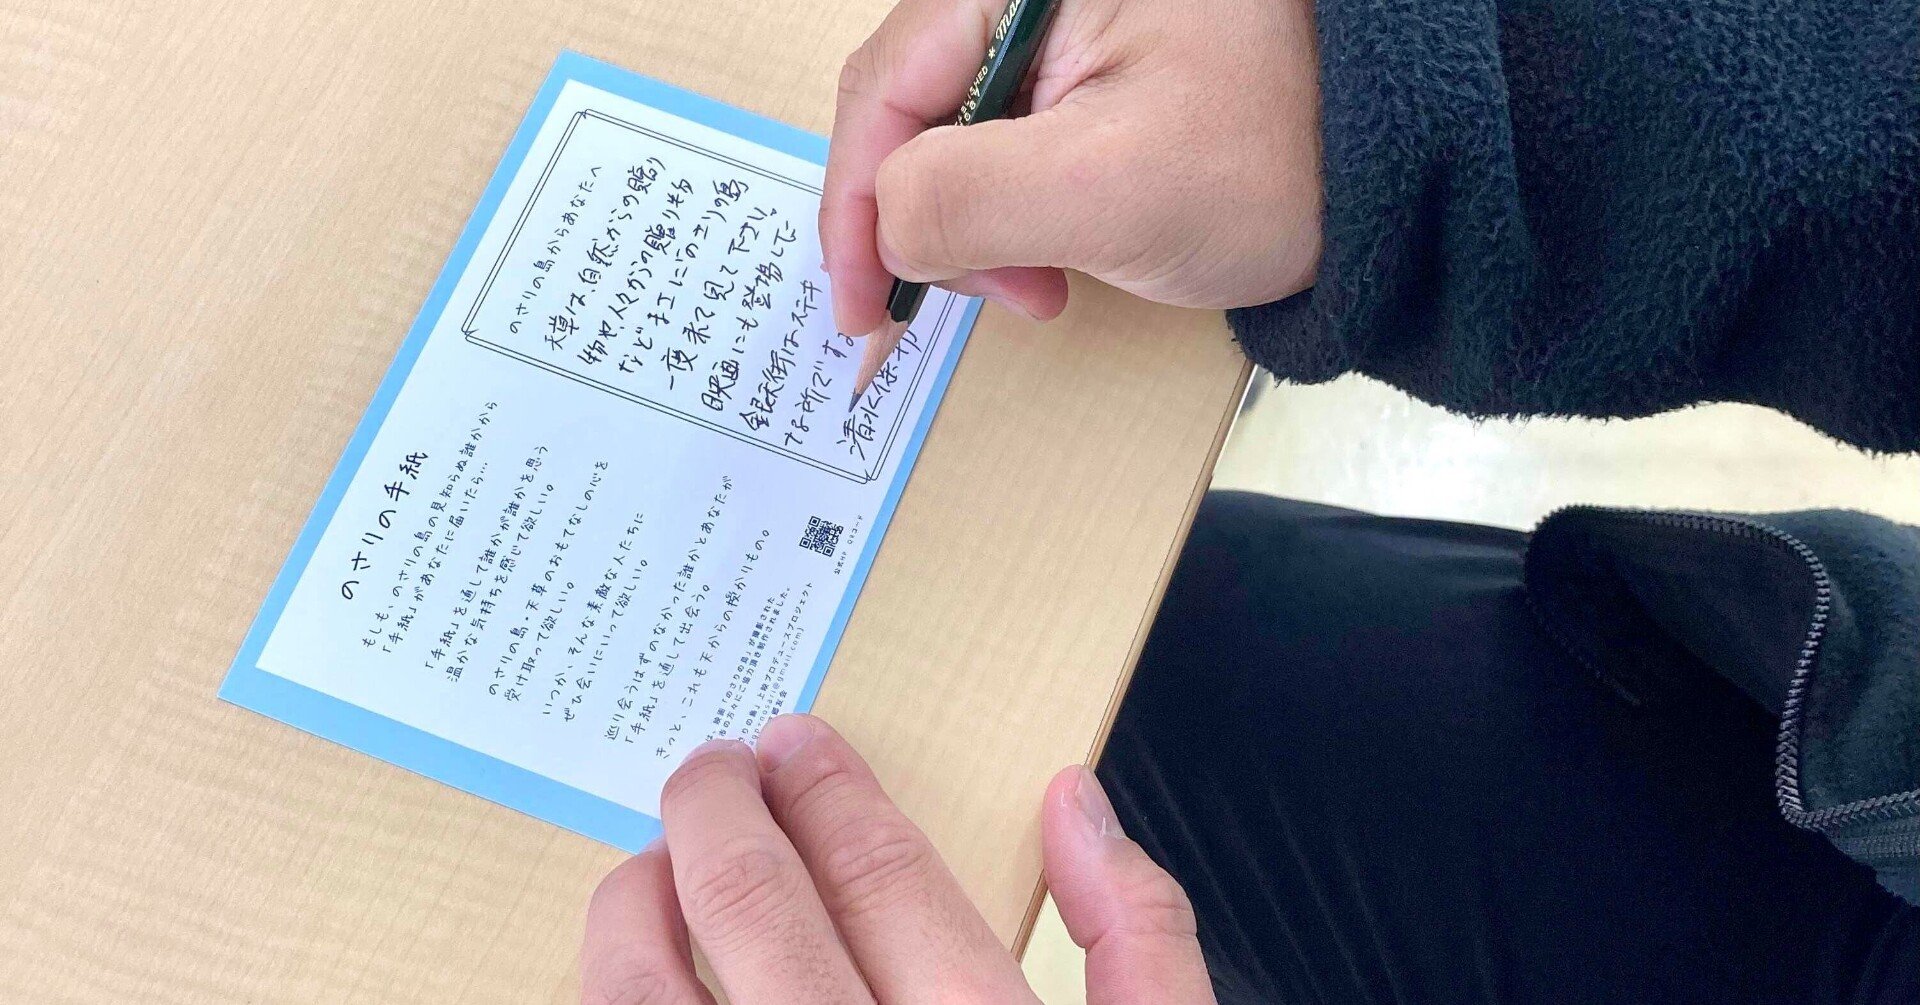 のさりの手紙
もしも、のさりの島の見知らぬ誰かから
「手紙」があなたに届いたら…
「手紙」を通して誰かが誰かを思う
温かな気持ちを感じて欲しい。
のさりの島・天草のおもてなしの心を
受け取って欲しい。
いつか、そんな素敵な人たちに
ぜひ会いにいって欲しい。
巡り会うはずのなかった誰かとあなたが
「手紙」を通して出会う。
きっと、これも天からの授かりもの。
は、映画「のさりの島」が撮影された
市の方々にご協力頂き制作されました。
さりの島」上映プロデュースプロジェクト
郷友会
@gmail.com]
公式HP QRコード
のさりの島からあなたへ
天草は、自然からの贈り
物や、人々からの贈りもの
などまさにのさりの島
一度来て見て下さい。
映画にも登場した
銀天街はステキ
な所です
清水
ABLISHED